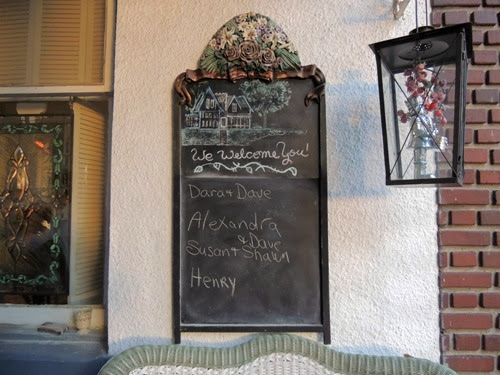 We Welcome You!
Dara + Dave
Alexandra
& Dave
Susan + Shawn
Henry